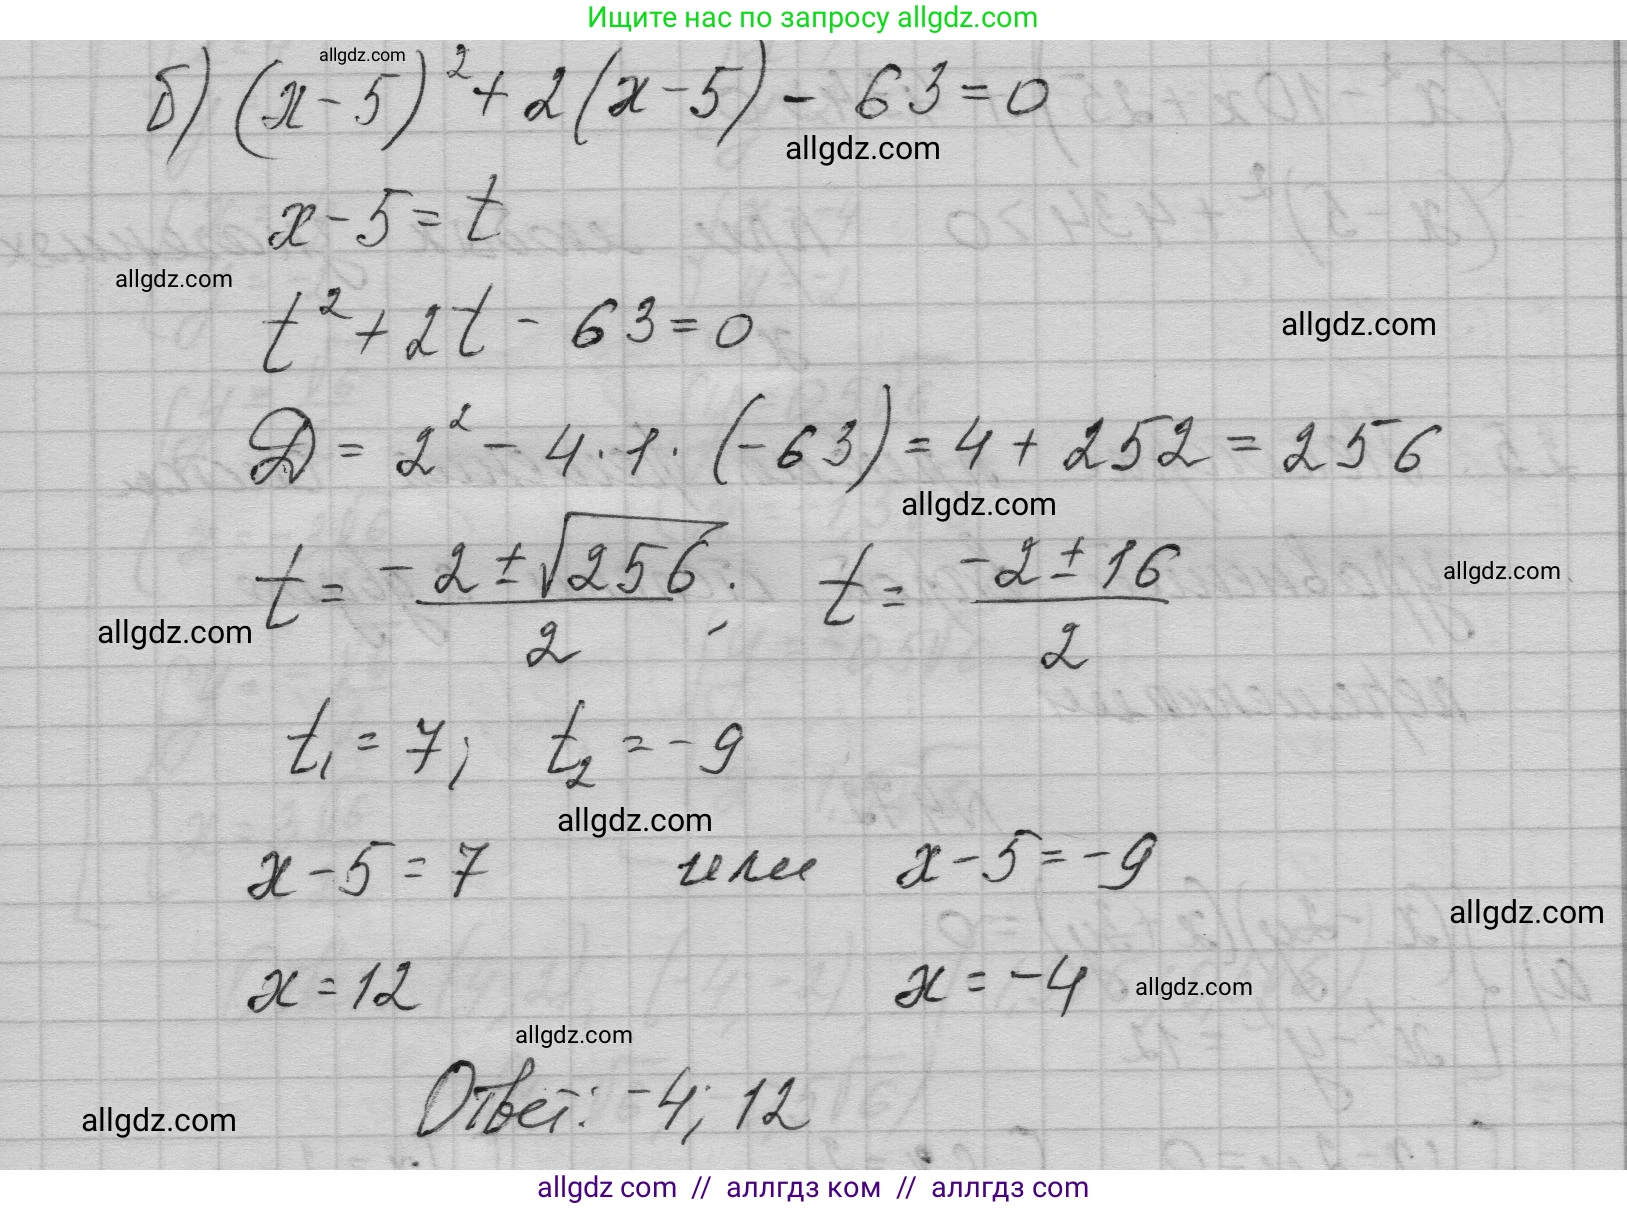 Ищите нас по запросу allgdz.com
allgdz.com
б) (x-5)² + 2(x-5) - 63 = 0
allgdz.com
x-5 = t
allgdz.com
t² + 2t - 63 = 0
allgdz.com
D = 2² - 4·1·(-63) = 4 + 252 = 256
allgdz.com
t = (-2 ± √256)/2; t = (-2 ± 16)/2
allgdz.com
allgdz.com
t₁ = 7; t₂ = -9
allgdz.com
x-5 = 7 или x-5 = -9
allgdz.com
x = 12 x = -4
allgdz.com
allgdz.com
Ответ: -4; 12
allgdz.com
allgdz com // аллгдз ком // аллгдз com